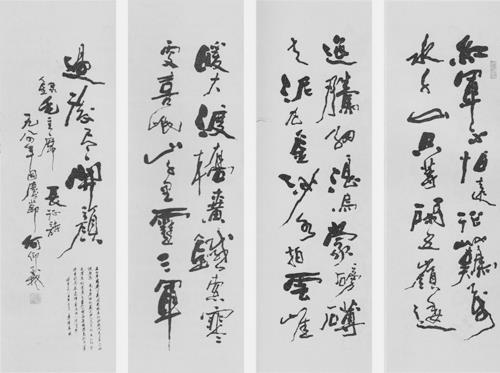 紅軍不怕遠征難萬
水千山只等閒五嶺逶
迤騰細浪烏蒙磅礴
走泥丸金沙水拍雲崖
暖大渡橋橫鐵索寒
更喜岷山千里雪三軍
過後尽開顏
錄毛主席長征詩
一九八四年國慶節何仰